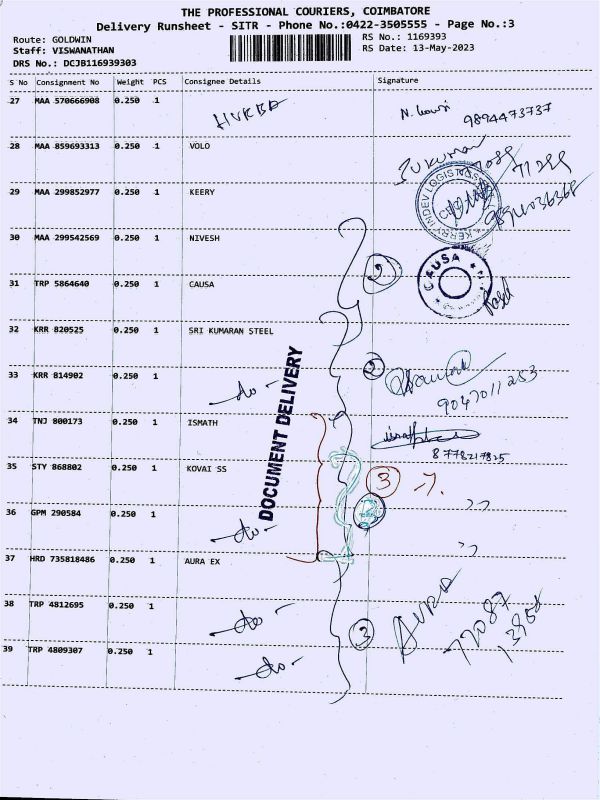 THE PROFESSIONAL COURIERS, COIMBATORE
Delivery Runsheet - SITR - Phone No.:0422-3505555 - Page No.:3
Route: GOLDWIN
Staff: VISWANATHAN
DRS No.: DCJB116939303
RS No.: 1169393
RS Date: 13-May-2023
S No Consignment No Weight PCS Consignee Details Signature
27 MAA 570666908 0.250 1
9894473737
28 MAA 859693313 0.250 1 VOLO
29 MAA 299852977 0.250 1 KEERY
KERRY INDEV LOGISTICS
30 MAA 299542569 0.250 1 NIVESH
31 TRP 5864640 0.250 1 CAUSA
CAUSA
32 KRR 820525 0.250 1 SRI KUMARAN STEEL
33 KRR 814902 0.250 1 -do-
2
9047011253
34 TNJ 800173 0.250 1 ISMATH
8778217825
35 STY 868802 0.250 1 KOVAI SS
3
36 GPM 290584 0.250 1 -do-
37 HRD 735818486 0.250 1 AURA EX
38 TRP 4812695 0.250 1 -do-
3
AURA
39 TRP 4809307 0.250 1 -do-
DOCUMENT DELIVERY